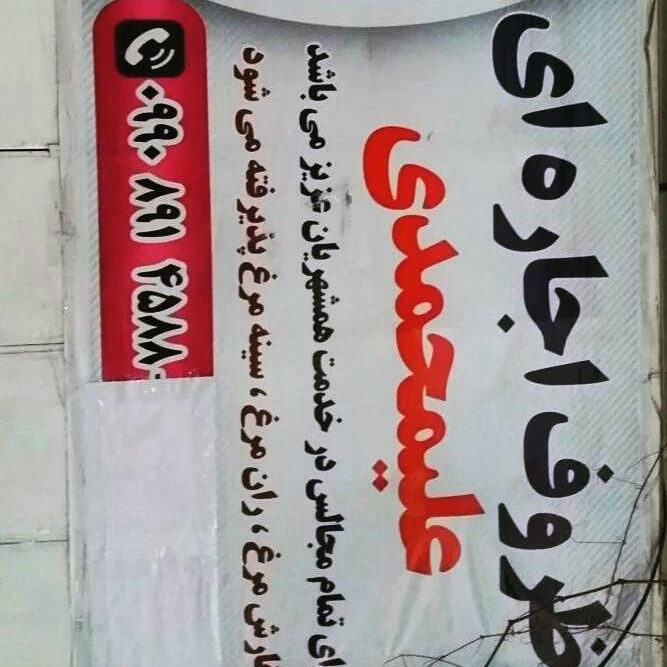 ظروف اجاره ای
علیمحمدی
ای تمام مجالس در خدمت همشهریان عزیز می باشد
ارش مرغ ، ران مرغ ، سینه مرغ پذیرفته می شود
۰۹۹۰ ۸۹۱ ۴۵۸۸